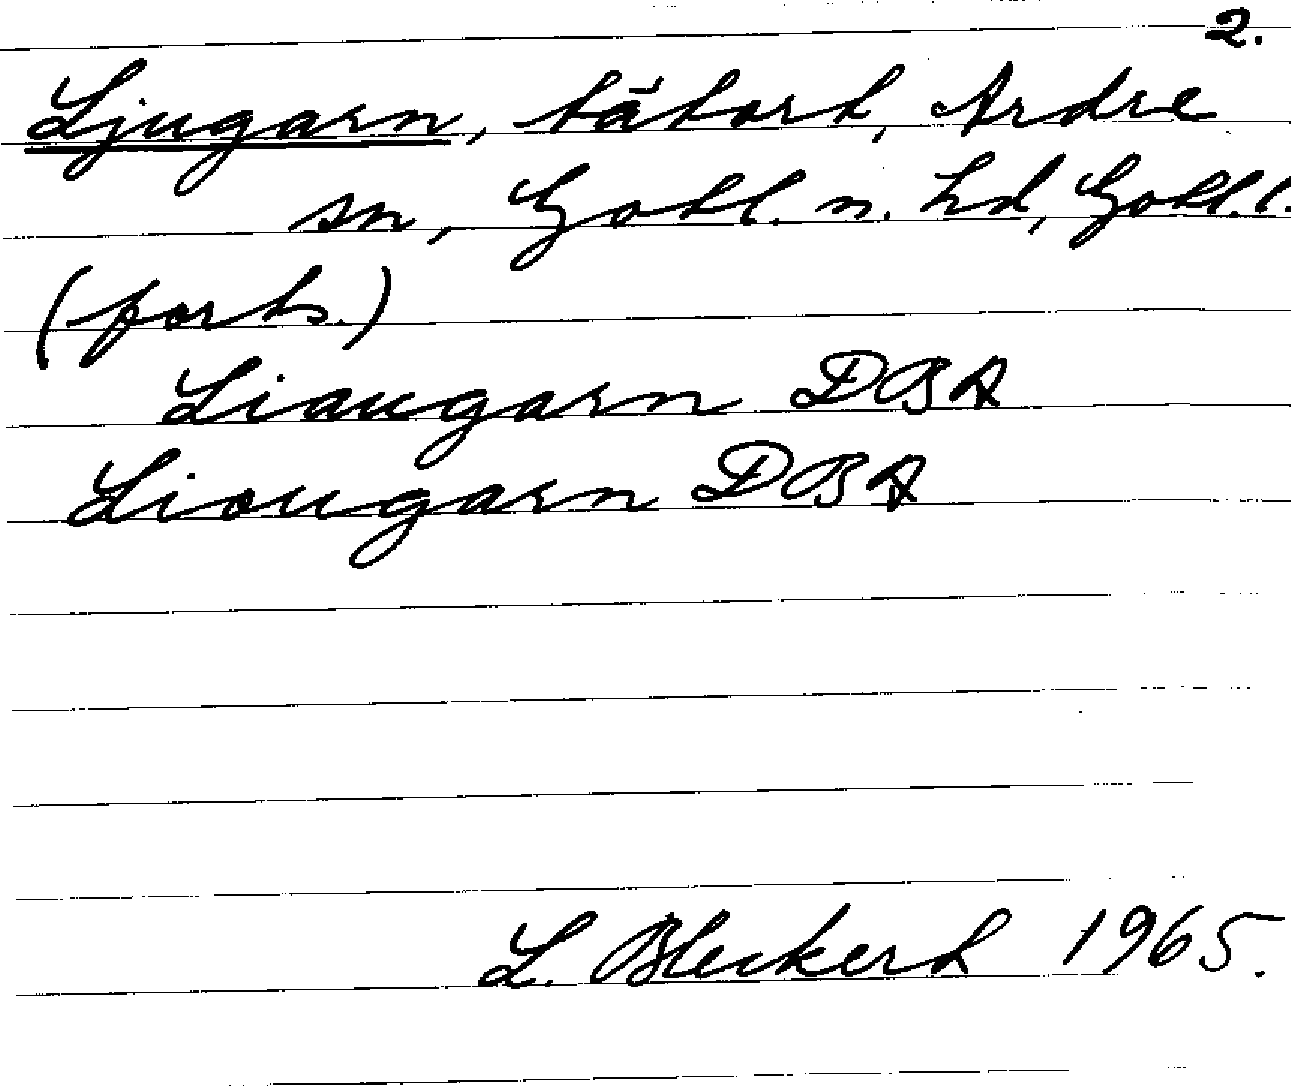 2.
Ljugarn, tätort, Ardre
sn, Gotl. n. hd, Gotl. l.
(forts.)
Liaugarn DBA
Liougarn DBA
L. Bleckert 1965.